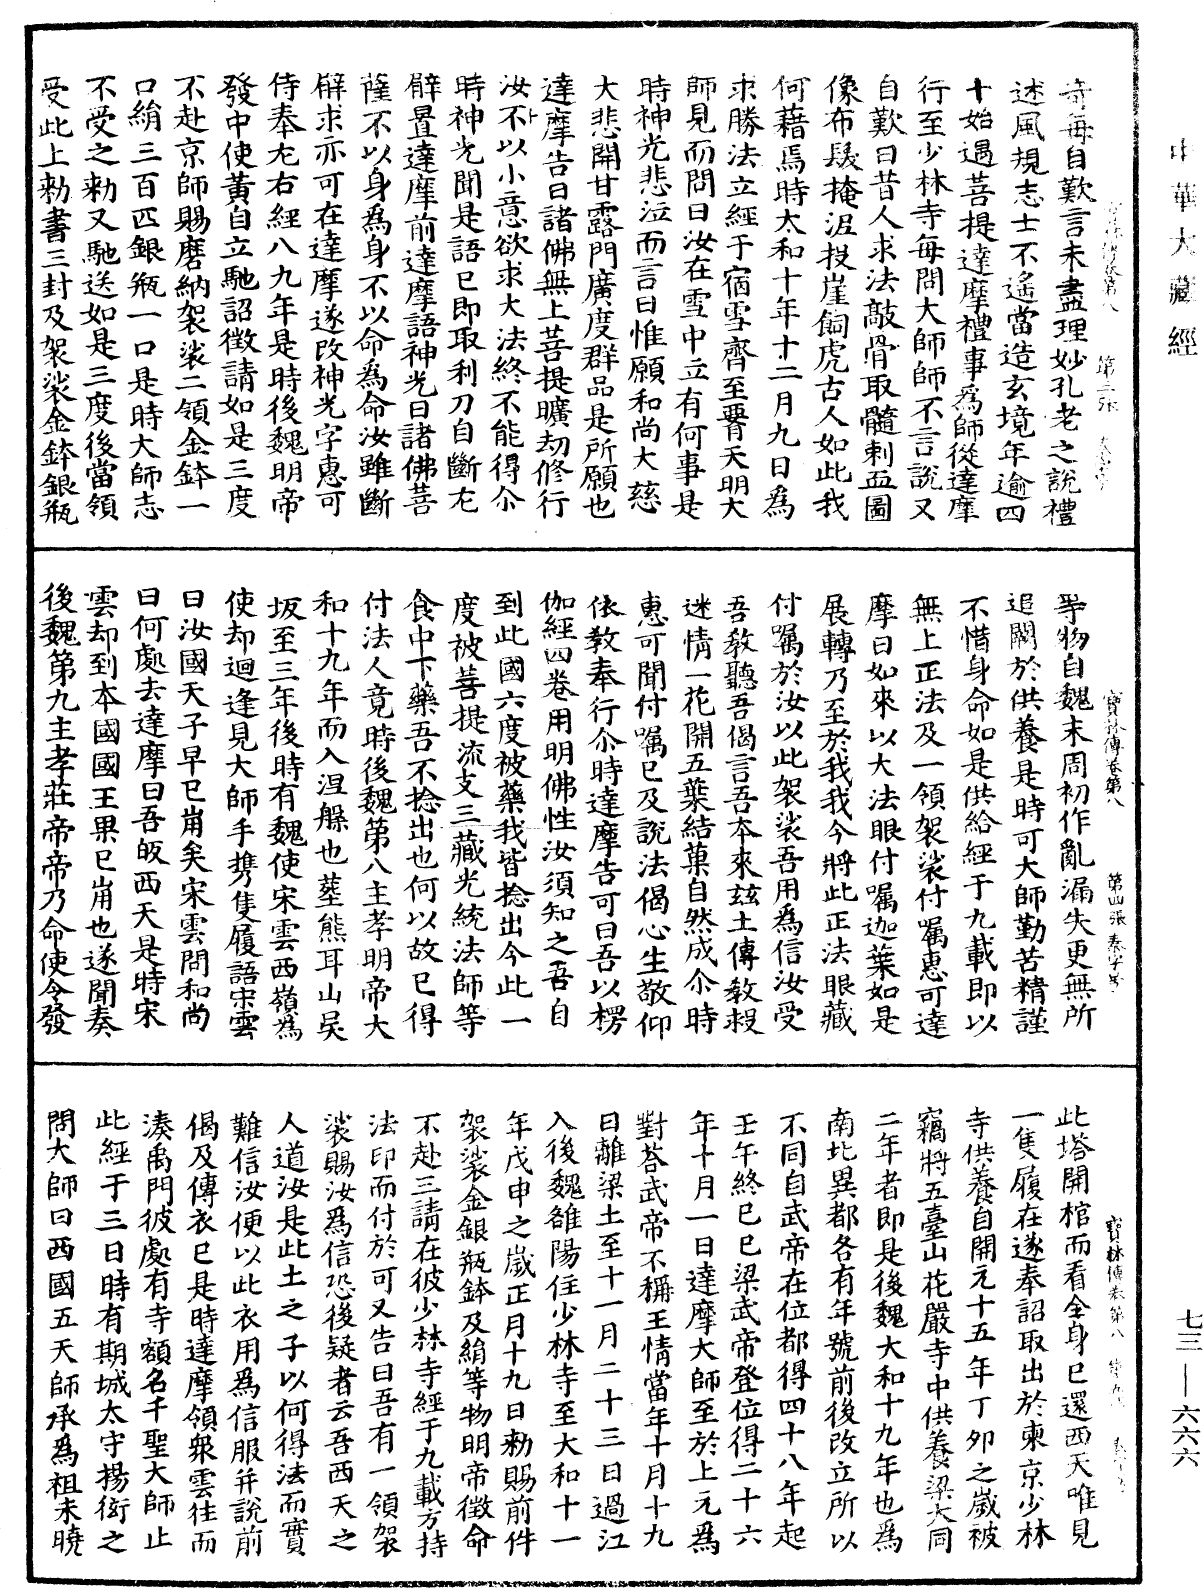 中華大藏經
奇每自歎言未盡理妙孔老之說禮
述風規志士不遙當造玄境年逾四
十始遇菩提達摩禮事爲師從達摩
行至少林寺每問大師師不言說又
自歎曰昔人求法敲骨取髓刺血圖
像布髮掩泥投崖飼虎古人如此我
何藉焉時太和十年十二月九日爲
求勝法立經于宿雪齊至腰天明大
師見而問曰汝在雪中立有何事是
時神光悲泣而言曰惟願和尚大慈
大悲開甘露門廣度群品是所願也
達摩告曰諸佛無上菩提曠劫修行
汝不以小意欲求大法終不能得尒
時神光聞是語已即取利刀自斷左
臂置達摩前達摩語神光曰諸佛菩
薩不以身為身不以命為命汝雖斷
臂求亦可在達摩遂改神光字惠可
侍奉左右經八九年是時後魏明帝
發中使黃自立馳詔徵請如是三度
不赴京師賜磨納袈裟二領金鉢一
口絹三百匹銀瓶一口是時大師志
不受之勑又馳送如是三度後當領
受此上勑書三封及袈裟金鉢銀瓶
寶林傳卷第八 第四張 秦字号
等物自魏末周初作亂漏失更無所
追闕於供養是時可大師勤苦精謹
不惜身命如是供給經于九載即以
無上正法及一領袈裟付囑惠可達
摩曰如來以大法眼付囑迦葉如是
展轉乃至於我我今將此正法眼藏
付囑於汝以此袈裟吾用爲信汝受
吾教聽吾偈言吾本來茲土傳教救
迷情一花開五葉結菓自然成尒時
惠可聞付囑已及說法偈心生敬仰
依教奉行尒時達摩告可曰吾以楞
伽經四卷用明佛性汝須知之吾自
到此國六度被藥我皆捻出今此一
度被菩提流支三藏光統法師等
食中下藥吾不捻出也何以故已得
付法人竟時後魏第八主孝明帝大
和十九年而入涅槃也塟熊耳山吴
坂至三年後時有魏使宋雲西嶺為
使却迴逢見大師手攜隻履語宋雲
曰汝國天子早已崩矣宋雲問和尚
曰何處去達摩曰吾皈西天是時宋
雲却到本國國王果已崩也遂聞奏
後魏第九主孝莊帝帝乃命使令發
寶林傳卷第八
此塔開棺而看全身已還西天唯見
一隻履在遂奉詔取出於東京少林
寺供養自開元十五年丁夘之歲被
竊將五臺山花嚴寺中供養梁大同
二年者即是後魏大和十九年也爲
南北異都各有年號前後改立所以
不同自武帝在位都得四十八年起
壬午終己巳梁武帝登位得二十六
年十月一日達摩大師至於上元爲
對荅武帝不稱王情當年十月十九
日離梁土至十一月二十三日過江
入後魏雒陽住少林寺至大和十一
年戊申之歲正月十九日勑賜前件
袈裟金銀瓶鉢及絹等物明帝徵命
不赴三請在彼少林寺經于九載方持
法印而付於可又告曰吾有一領袈
裟賜汝爲信恐後疑者云吾西天之
人道汝是此土之子以何得法而實
難信汝便以此衣用爲信服并說前
偈及傳衣已是時達摩領衆雲往而
湊禹門彼處有寺額名千聖大師止
此經于三日時有期城太守揚衒之
問大師曰西國五天師承爲祖未曉
七三—六六六